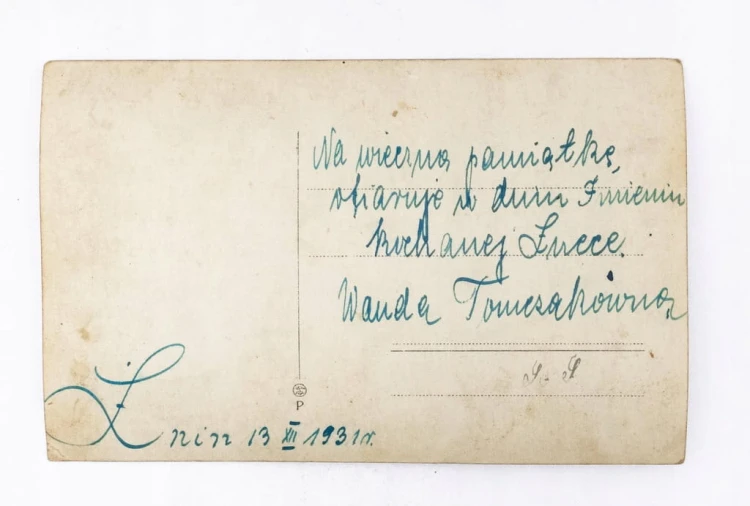 Na wieczną pamiątkę,
ofiaruje w dniu Imienin
kochanej Łucce.
Wanda Tomczakówna
S. S
P
Żnin 13 XII 1931r.